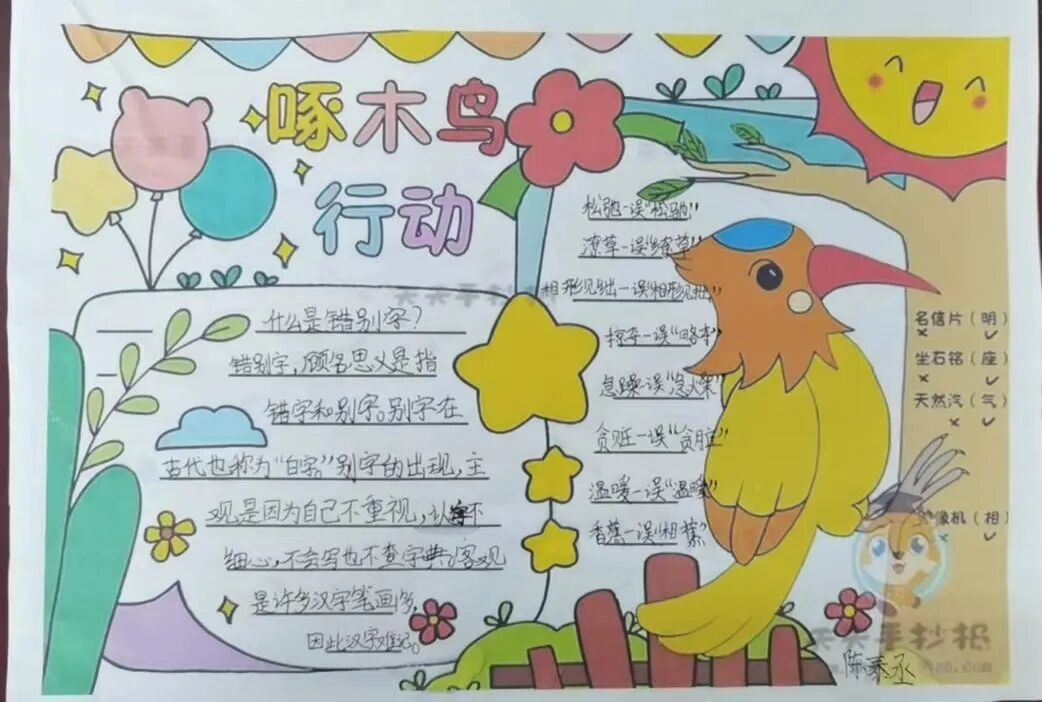 啄木鸟
行动
什么是错别字?
错别字,顾名思义是指
错字和别字。别字在
古代也称为“白字。”别字的出现,主
观是因为自己不重视,认字不
细心,不会写也不查字典。客观
是许多汉字笔画多,
因此汉字难记。
松驰一误“松弛”
潦草一误“缭草”
相形见绌一误“相形见拙”
掠夺一误“略夺”
急躁一误“急燥”
贪赃一误“贪脏”
温暖一误“温暖”
香蕉一误“相蕉”
名信片(明)
× ✓
坐石铭(座)
× ✓
天然汽(气)
× ✓
像机(相)
× ✓
天天手抄报
陈泰丞